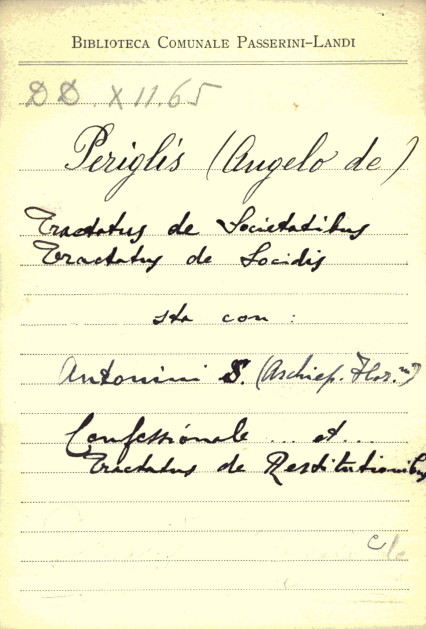 BIBLIOTECA COMUNALE PASSERINI-LANDI
DD. XII.65
Periglis (Angelo de)
Tractatus de Societatibus
Tractatus de Socidis
sta con :
Antonini S. (Archiep. Flor.ni)
Confessionale ... et ...
Tractatus de Restitutionibus